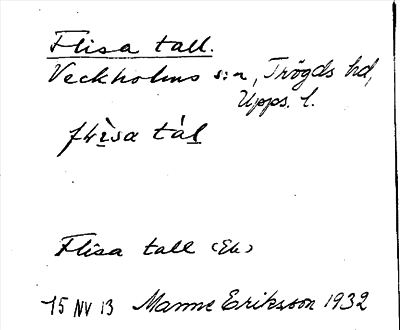 Flisa tall.
Veckholms s:n, Trögds hd,
Upps. l.
flìsa tál
Flisa tall (Ek)
15 NV 13 Manne Eriksson 1932